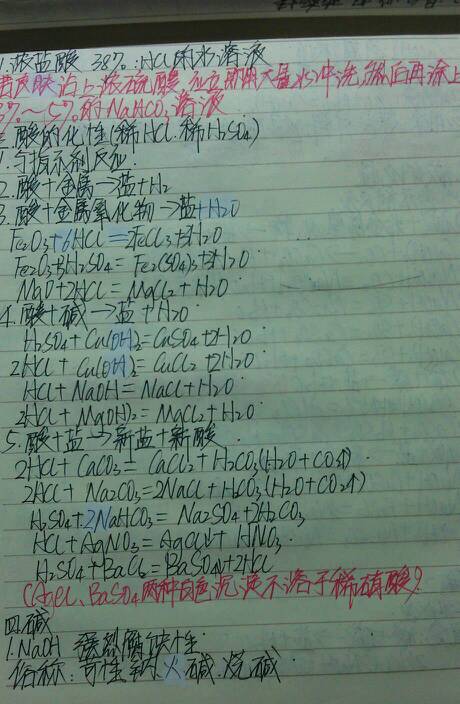 1.浓盐酸 38% HCl的水溶液
若皮肤沾上浓硫酸 应立即用大量水冲洗,然后再涂上
3%~5%的NaHCO3溶液
三.酸的化性(稀HCl.稀H2SO4)
1.与指示剂反应.
2.酸+金属→盐+H2
3.酸+金属氧化物→盐+H2O
Fe2O3+6HCl=2FeCl3+3H2O
Fe2O3+3H2SO4=Fe2(SO4)3+3H2O
MgO+2HCl=MgCl2+H2O
4.酸+碱→盐+H2O
H2SO4+Cu(OH)2=CuSO4+2H2O
2HCl+Cu(OH)2=CuCl2+2H2O
HCl+NaOH=NaCl+H2O
2HCl+Mg(OH)2=MgCl2+H2O
5.酸+盐→新盐+新酸
2HCl+CaCO3=CaCl2+H2CO3(H2O+CO2↑)
2HCl+Na2CO3=2NaCl+H2CO3(H2O+CO2↑)
H2SO4+2NaHCO3=Na2SO4+2H2CO3
HCl+AgNO3=AgCl↓+HNO3
H2SO4+BaCl2=BaSO4↓+2HCl
(AgCl、BaSO4两种白色沉淀不溶于稀硝酸)
四.碱
1.NaOH 强烈腐蚀性
俗称:苛性钠.火碱.烧碱